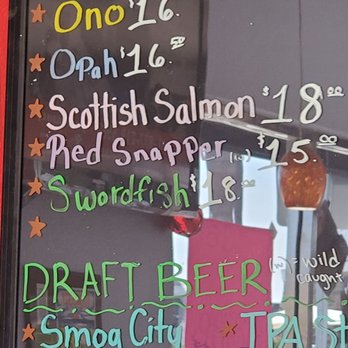 Ono $16
Opah $16.50
Scottish Salmon $18.00
Red Snapper (w) $15.00
Swordfish $18.00
DRAFT BEER (w) = wild caught
Smog City IPA St